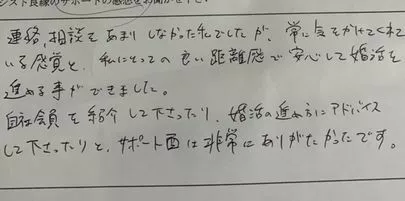 シスト良縁のサポートの感想をお聞かせ下さい。
連絡、相談をあまりしなかった私でしたが、常に気をかけてくれて
いる感覚と、私にとっての良い距離感で安心して婚活を
進める事ができました。
自社会員を紹介して下さったり、婚活の進め方にアドバイス
して下さったりと、サポート面は非常にありがたかったです。